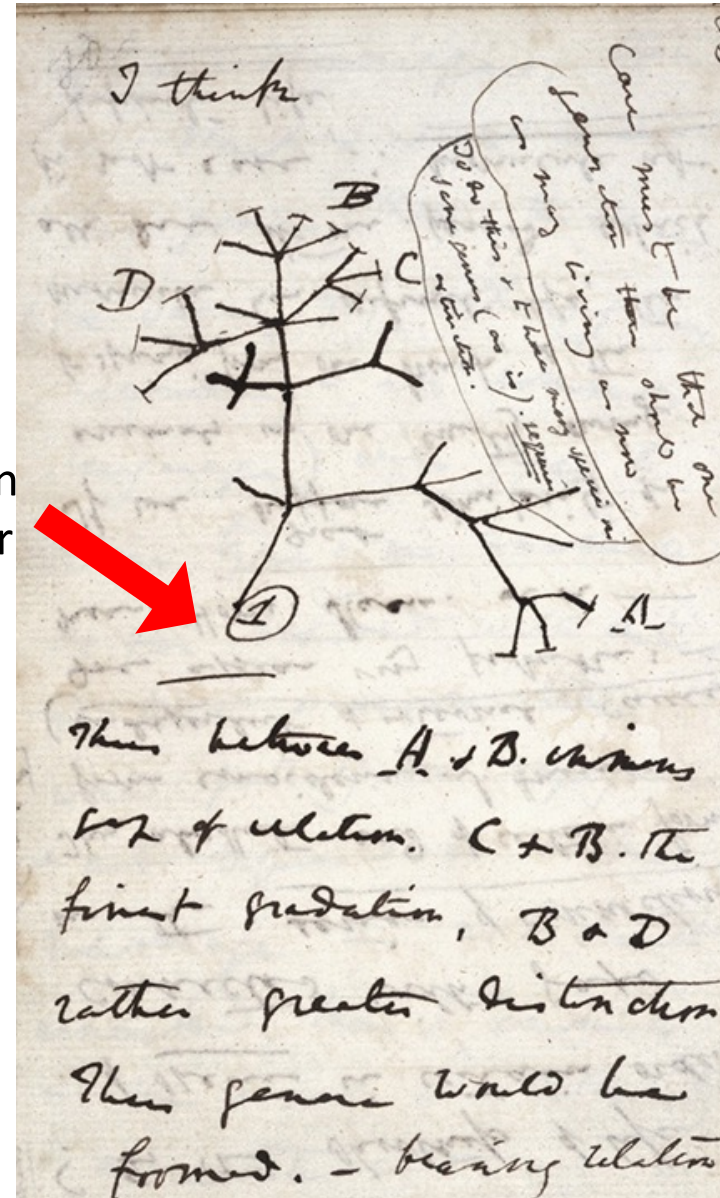 I think
Case must be that one
generation then should be
as many living as now
To do this & to have many species in
same genus (as is). requires
extinction.
B
C
D
A
n
r
1
Thus between A & B. immens
gap of relation. C & B. the
finest gradation, B & D
rather greater distinction
Thus genera would be
formed. – bearing relation